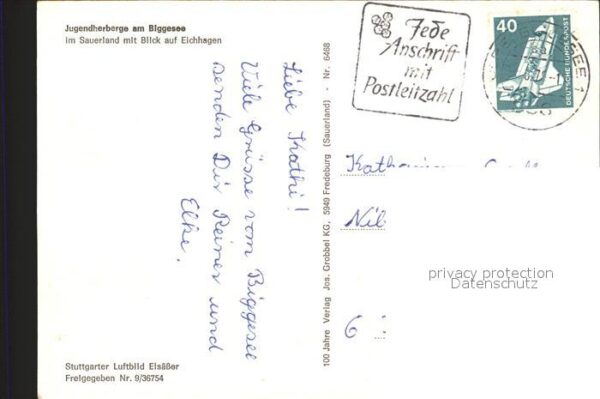 Jugendherberge am Biggesee
im Sauerland mit Blick auf Eichhagen
Liebe Kathi!
Viele Grüsse vom Biggesee
senden Dir Reiner und
Elke.
Stuttgarter Luftbild Elsäßer
Freigegeben Nr. 9/36754
100 Jahre Verlag Jos. Grobbel KG, 5949 Fredeburg (Sauerland) - Nr. 6468
Jede
Anschrift
mit
Postleitzahl
40
DEUTSCHE BUNDESPOST
6
privacy protection
Datenschutz